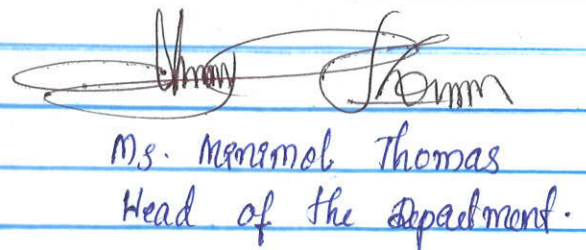 Ms. Minimol Thomas
Head of the Department.